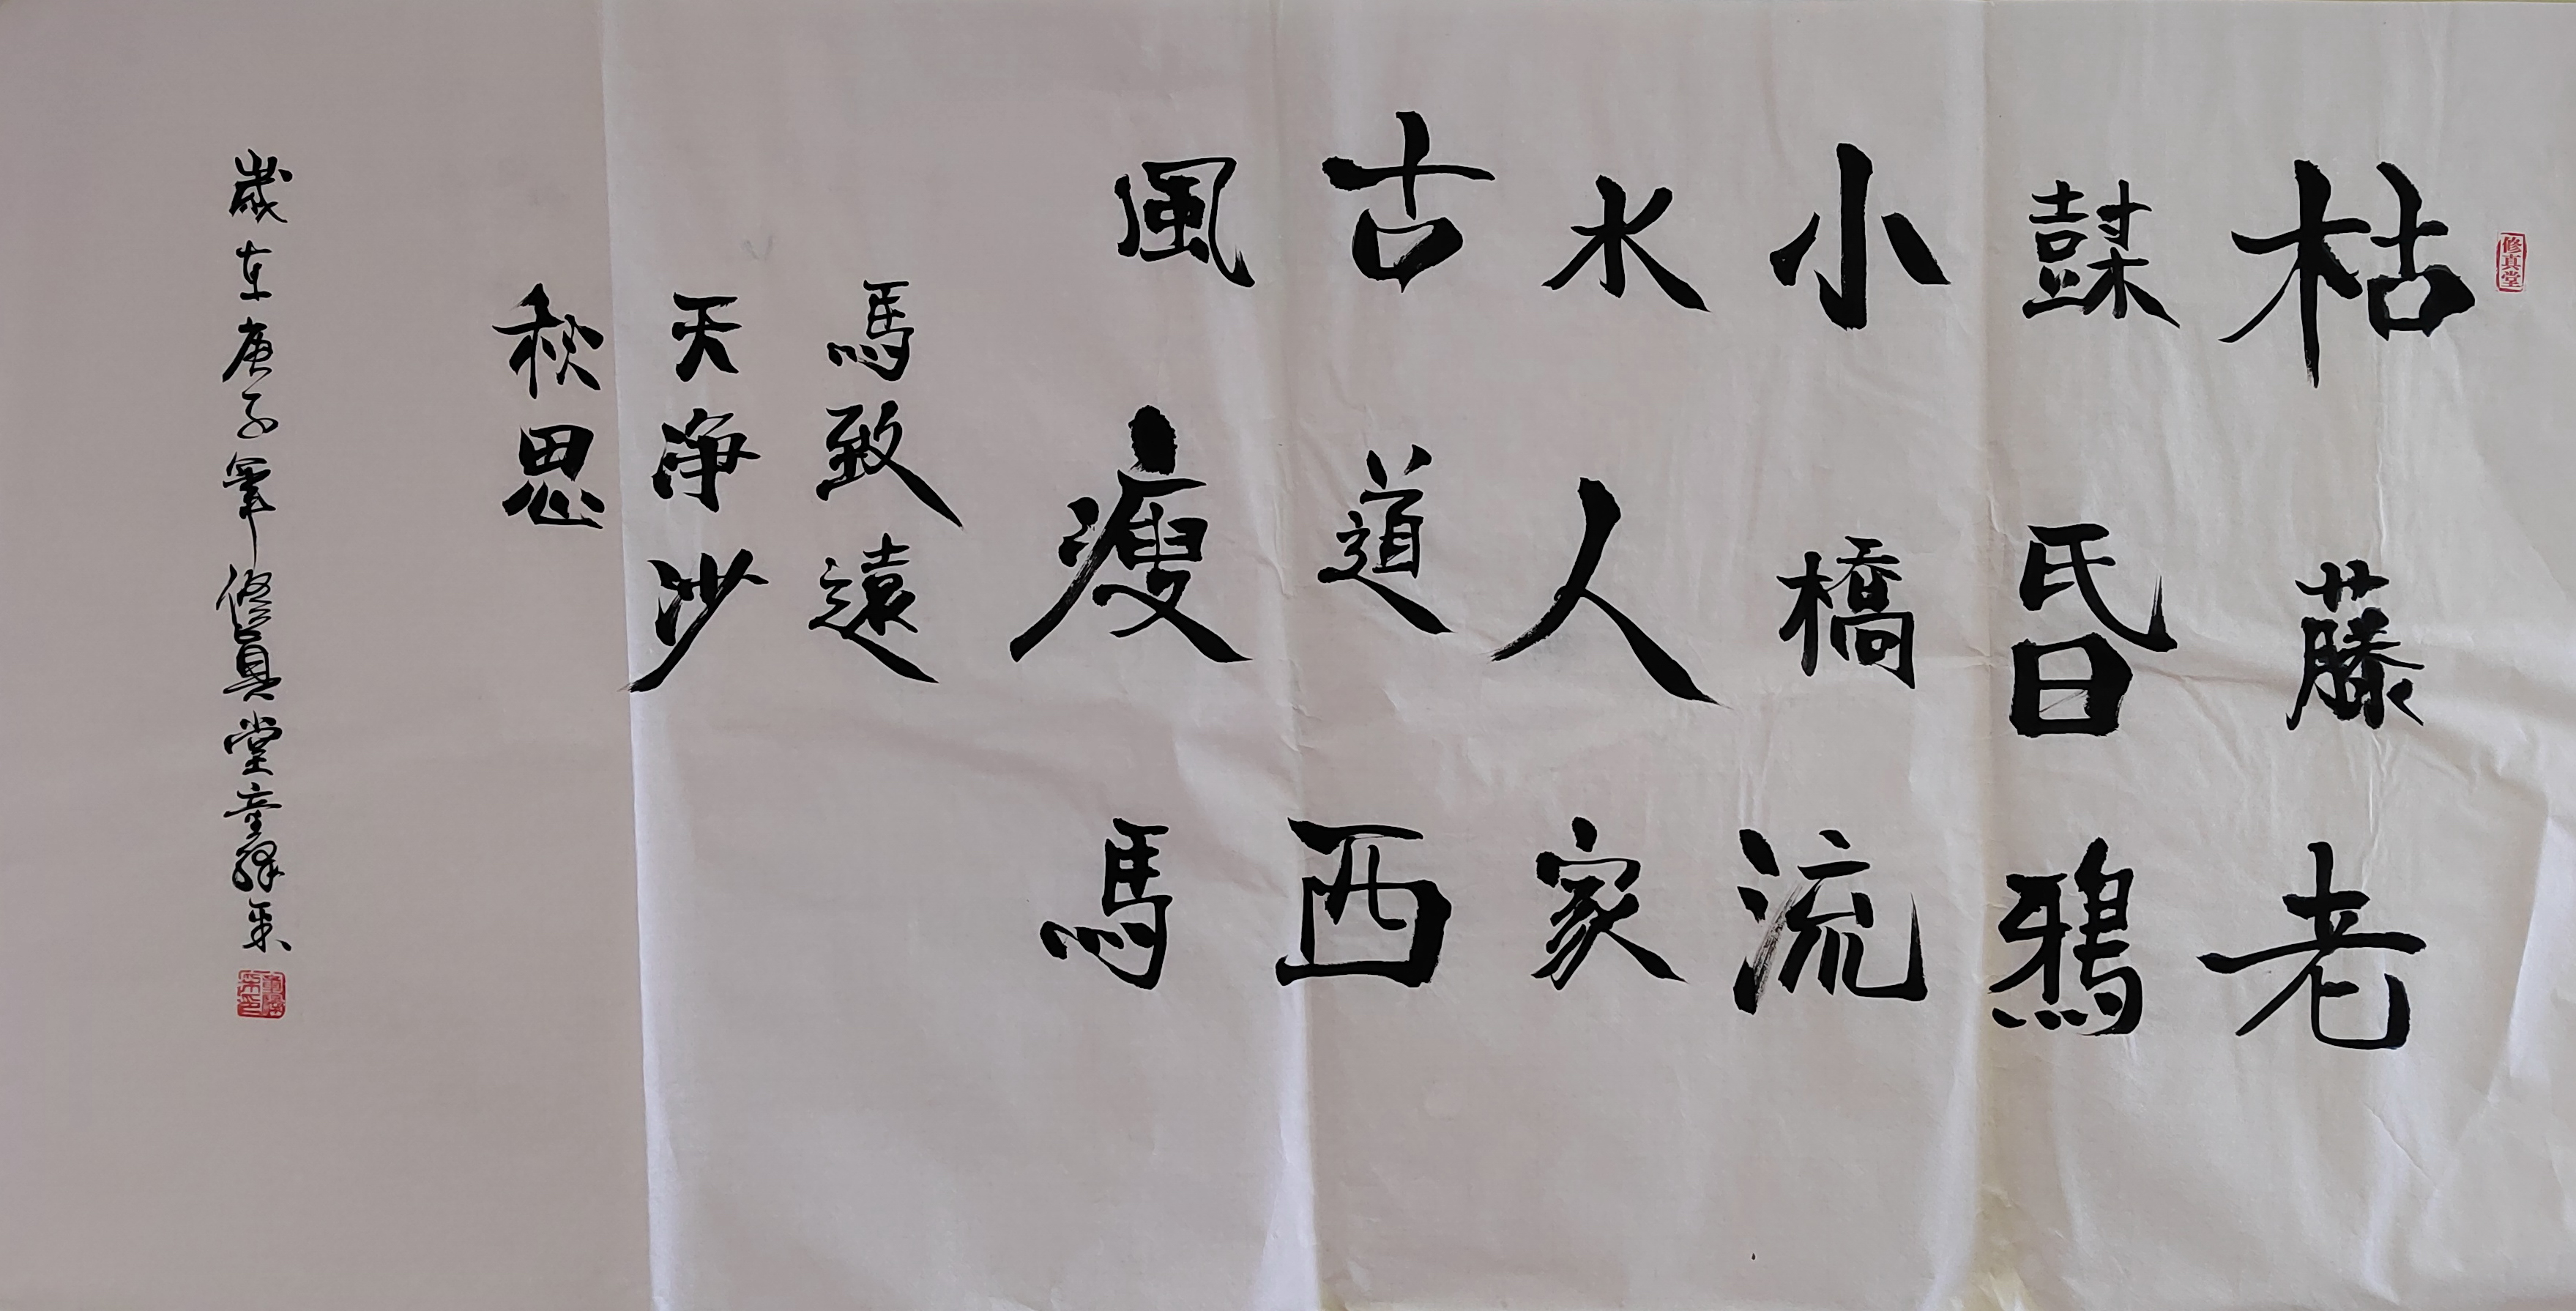 修真堂
枯藤老
𣗳昏鴉
小橋流
水人家
古道西
風瘦馬
馬致遠
天净沙
秋思
歲在庚子軍修真堂童繹采